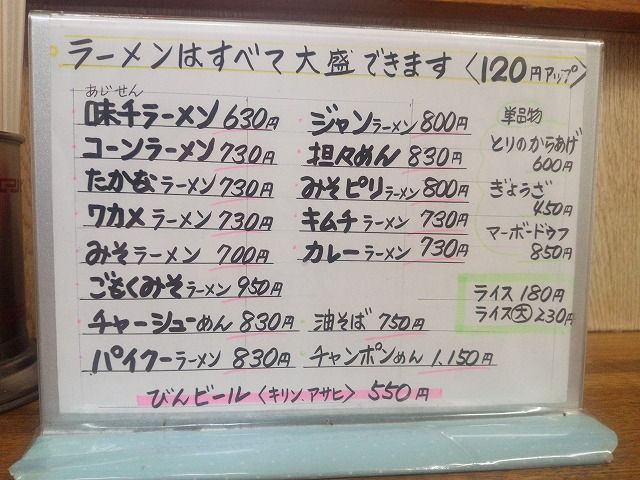 ラーメンはすべて大盛できます〈120円アップ〉
あじせん
味千ラーメン 630円
コーンラーメン 730円
たかなラーメン 730円
ワカメラーメン 730円
みそラーメン 700円
ごもくみそラーメン 950円
チャーシューめん 830円
パイクーラーメン 830円
ジャンラーメン 800円
担々めん 830円
みそピリラーメン 800円
キムチラーメン 730円
カレーラーメン 730円
油そば 750円
チャンポンめん 1,150円
単品物
とりのからあげ
600円
ぎょうざ
450円
マーボードウフ
850円
ライス 180円
ライス大 230円
びんビール〈キリン.アサヒ〉 550円